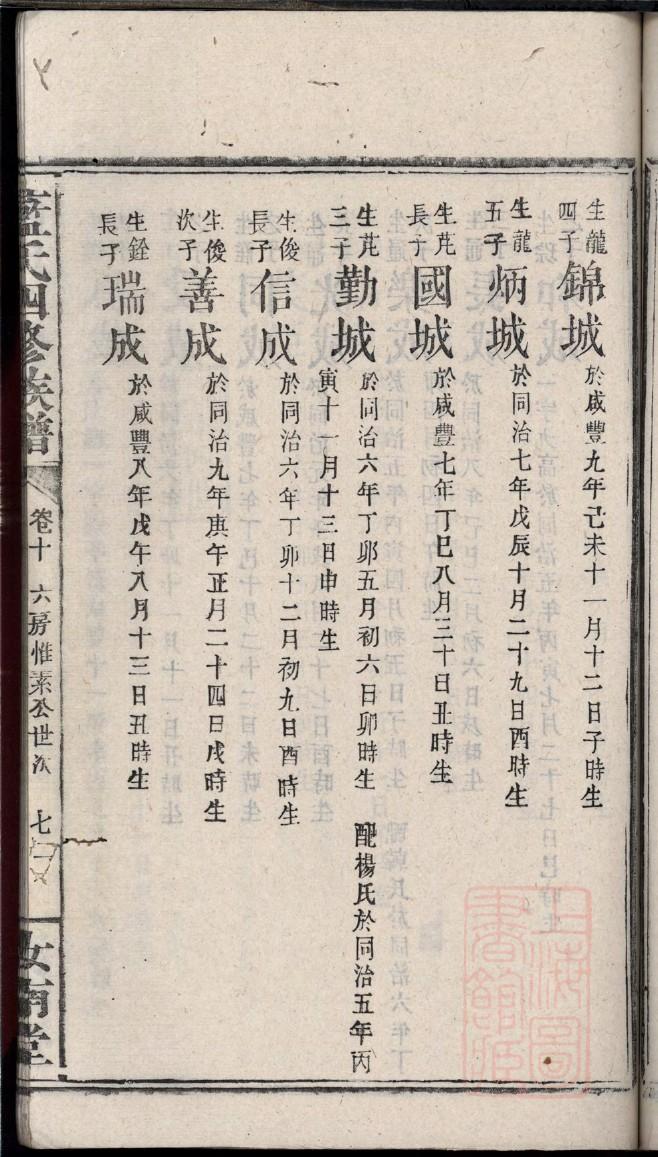 生龍四子錦城於咸豐九年己未十一月十二日子時生
生龍五子炳城於同治七年戊辰十月二十九日酉時生
生芘長子國城於咸豐七年丁巳八月三十日丑時生
生芘三子勤城於同治六年丁卯五月初六日卯時生 配楊氏於同治五年丙
寅十一月十三日申時生
生俊長子信成於同治六年丁卯十二月初九日酉時生
生俊次子善成於同治九年庚午正月二十四日戌時生
生銓長子瑞成於咸豐八年戊午八月十三日丑時生
氏四修族譜 卷十 六房惟素公世次 七 汝南堂
上海圖書館